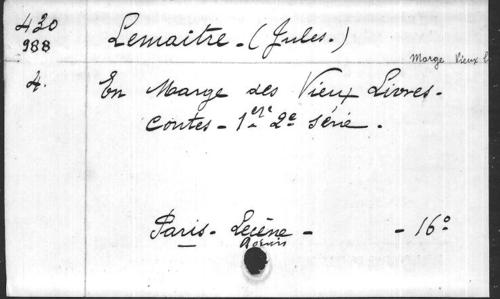 420
988
Lemaitre - (Jules.)
Marge Vieux
4. En Marge des Vieux Livres -
contes - 1ère 2e série.
Paris - Lecène - - 16°